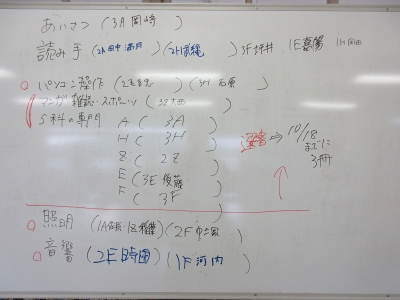 あいさつ (3A 岡崎 )
読み手 (2A 田中 ) (2H ) 3F 坪井 1E 1H 岡田
パソコン操作 ( ) (3H 石原 )
マンガ 雑誌・スポーツ ( )
5科の専門 A ( 3A )
H ( 3H )
Z ( 2Z )
E ( 3E 後藤 )
F ( 3F )
選書 ⇒ 10/18 までに 3冊
照明 (1A ) (2F )
音響 (2E 時田) (1F 河内 )